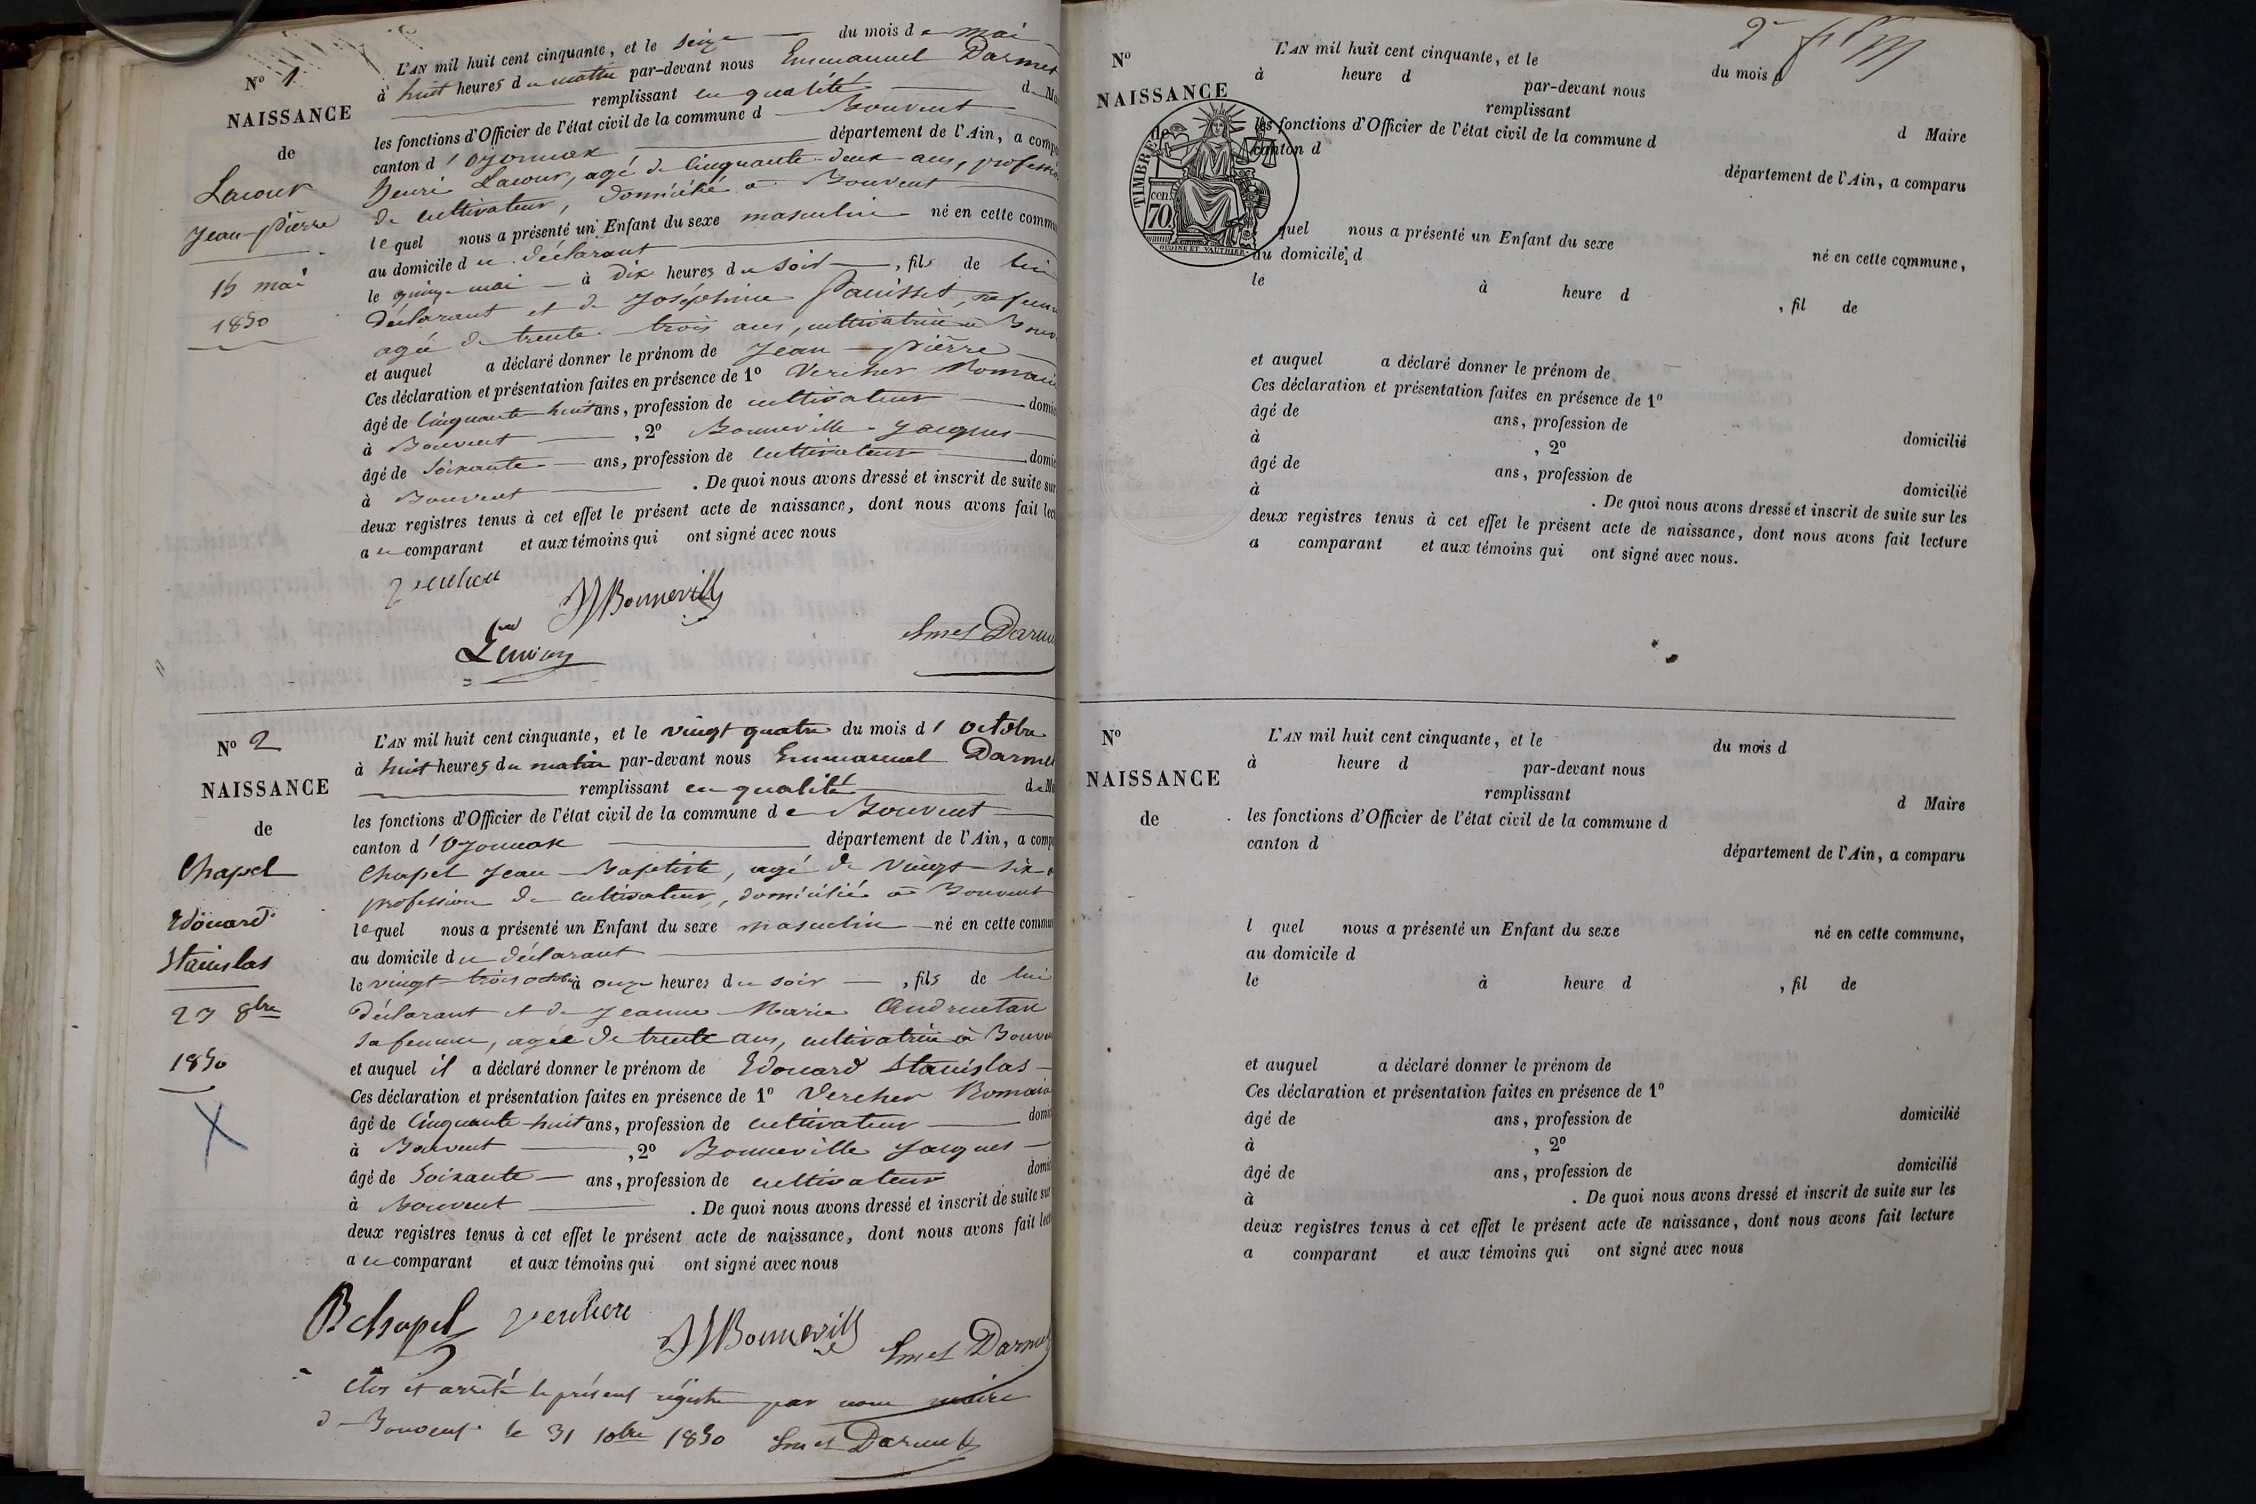 N° 1
NAISSANCE
de
Lacour
Jean-Pierre
15 mai
1850
L'AN mil huit cent cinquante, et le seize du mois de mai
à huit heures du matin par-devant nous Emmanuel Darmet
remplissant en qualité d
les fonctions d'Officier de l'état civil de la commune d Bouvent
canton d'Oyonnax département de l'Ain, a comp
henri Lacour, agé de cinquante-deux ans, professi
de cultivateur, domicilié à Bouvent
lequel nous a présenté un Enfant du sexe masculin né en cette commu
au domicile du déclarant
le quinze mai à Dix heures du soir, fils de lui
déclarant et de Joséphine sa femm
agée de trente-trois ans, cultivatrice à Bouv
et auquel a déclaré donner le prénom de Jean-pierre
Ces déclaration et présentation faites en présence de 1° Vercher Romain
âgé de cinquante-huit ans, profession de cultivateur domic
à Bouvent, 2° Bonneville Jacques
âgé de Soixante ans, profession de cultivateur domic
à Bouvent. De quoi nous avons dressé et inscrit de suite sur
deux registres tenus à cet effet le présent acte de naissance, dont nous avons fait lec
au comparant et aux témoins qui ont signé avec nous
Bonneville
Darm
N° 2
NAISSANCE
de
Chapel
Edouard
Stanislas
23 8bre
1850
X
L'AN mil huit cent cinquante, et le vingt quatre du mois d'octobre
à huit heures du matin par-devant nous Emmanuel Darmet
remplissant en qualité de M
les fonctions d'Officier de l'état civil de la commune de Bouvent
canton d'Oyonnax département de l'Ain, a comp
Chapel Jean-Baptiste, agé de vingt-six a
profession de cultivateur, domicilié à Bouvent
lequel nous a présenté un Enfant du sexe masculin né en cette commun
au domicile du déclarant
le vingt-trois octobre à onze heures du soir, fils de lui
déclarant et de Jeanne-Marie
sa femme, agée de trente ans, cultivatrice à Bouve
et auquel il a déclaré donner le prénom de Edouard Stanislas
Ces déclaration et présentation faites en présence de 1° Vercher Romain
âgé de cinquante-huit ans, profession de cultivateur domic
à Bouvent, 2° Bonneville Jacques
âgé de Soixante ans, profession de cultivateur domic
à Bouvent. De quoi nous avons dressé et inscrit de suite sur
deux registres tenus à cet effet le présent acte de naissance, dont nous avons fait lect
au comparant et aux témoins qui ont signé avec nous
B Chapel
Bonneville
Darmet
Clos et arrêté le présent régistre par nous maire
de Bouvent le 31 10bre 1850 Darmet
N°
NAISSANCE
de
TIMBRE
70 cen.
OUDINÉ ET VAUTHIER
L'AN mil huit cent cinquante, et le du mois d
à heure d par-devant nous
remplissant d Maire
les fonctions d'Officier de l'état civil de la commune d
canton d département de l'Ain, a comparu
quel nous a présenté un Enfant du sexe né en cette commune,
au domicile d
le à heure d, fil de
et auquel a déclaré donner le prénom de
Ces déclaration et présentation faites en présence de 1°
âgé de ans, profession de domicilié
à, 2°
âgé de ans, profession de domicilié
à. De quoi nous avons dressé et inscrit de suite sur les
deux registres tenus à cet effet le présent acte de naissance, dont nous avons fait lecture
a comparant et aux témoins qui ont signé avec nous.
N°
NAISSANCE
de
L'AN mil huit cent cinquante, et le du mois d
à heure d par-devant nous
remplissant d Maire
les fonctions d'Officier de l'état civil de la commune d
canton d département de l'Ain, a comparu
l quel nous a présenté un Enfant du sexe né en cette commune,
au domicile d
le à heure d, fil de
et auquel a déclaré donner le prénom de
Ces déclaration et présentation faites en présence de 1°
âgé de ans, profession de domicilié
à, 2°
âgé de ans, profession de domicilié
à. De quoi nous avons dressé et inscrit de suite sur les
deux registres tenus à cet effet le présent acte de naissance, dont nous avons fait lecture
a comparant et aux témoins qui ont signé avec nous